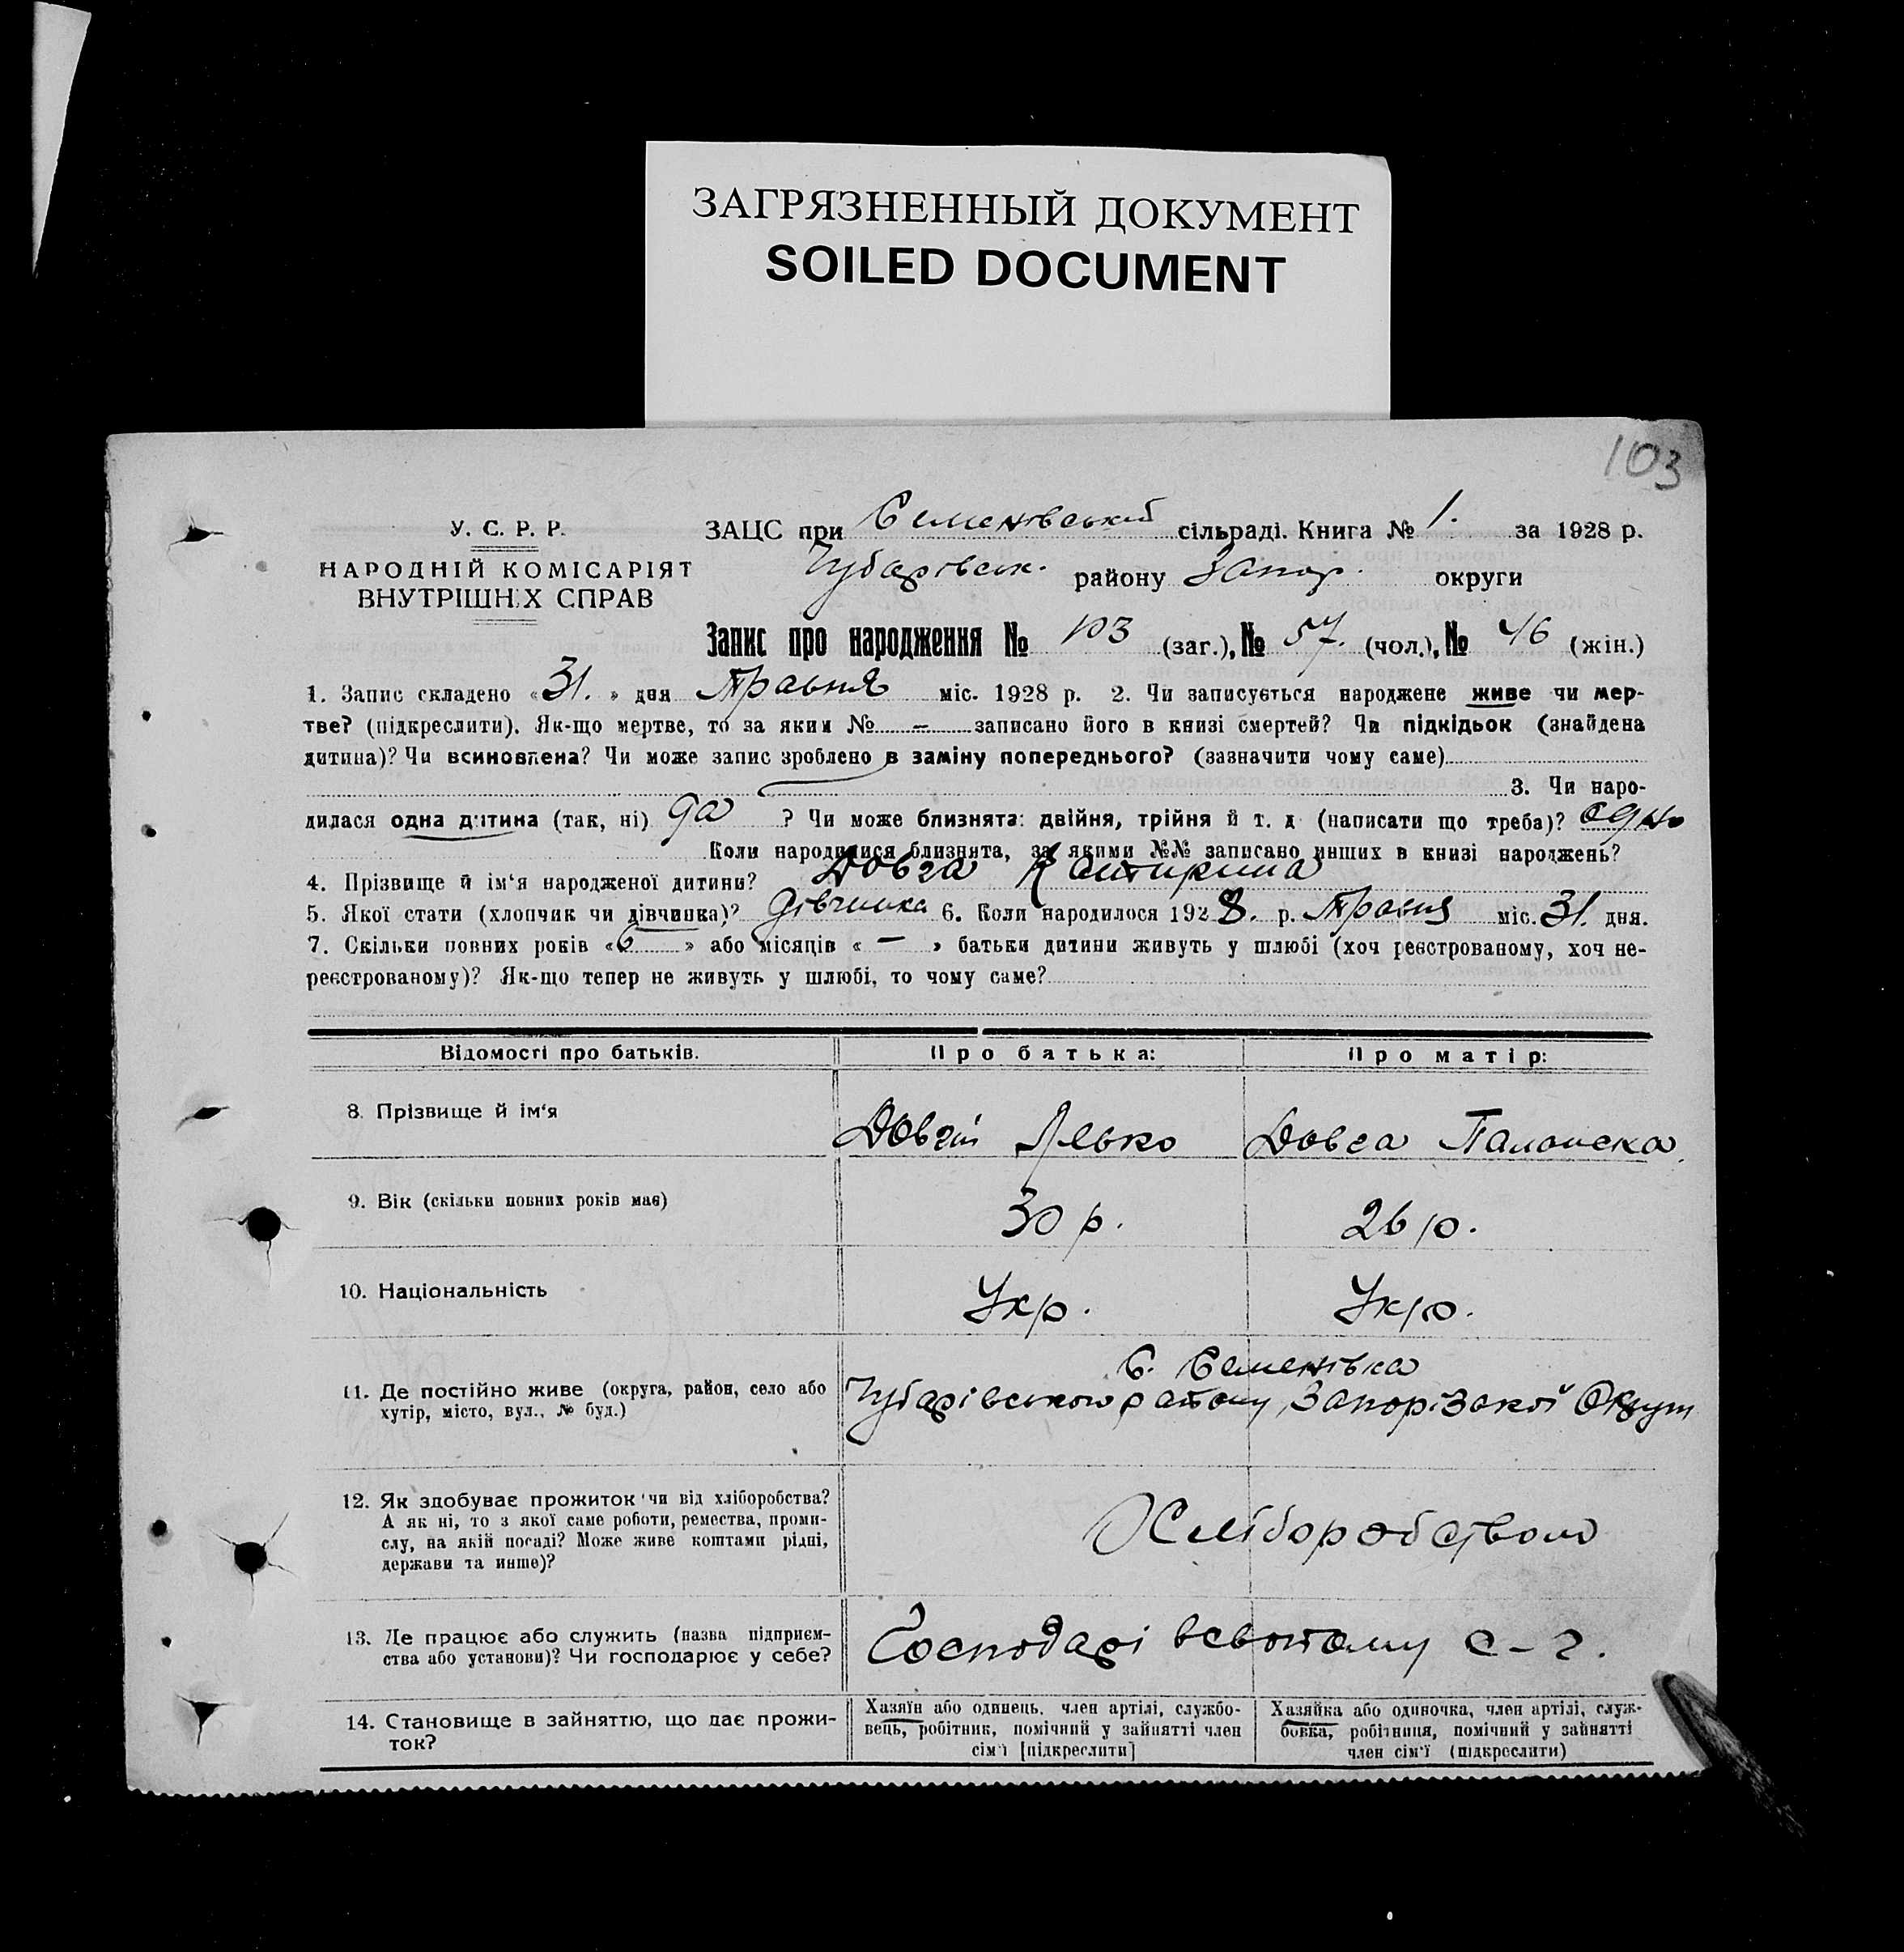 ЗАГРЯЗНЕННЫЙ ДОКУМЕНТ
SOILED DOCUMENT
103
У. С. Р. Р.
НАРОДНІЙ КОМІСАРІЯТ
ВНУТРІШНІХ СПРАВ
ЗАЦС при Семенівський сільраді. Книга № 1. за 1928 р.
Чубарівськ. району Запор. округи
Запис про народження № 103 (заг.), № 57. (чол.), № 46 (жін.)
1. Запис складено «31.» дня Травня міс. 1928 р. 2. Чи записується народжене живе чи мер-
тве? (підкреслити). Як-що мертве, то за яким № — записано його в книзі смертей? Чи підкідьок (знайдена
дитина)? Чи всиновлена? Чи може запис зроблено в заміну попереднього? (зазначити чому саме)
3. Чи наро-
дилася одна дитина (так, ні) да ? Чи може близнята: двійня, трійня й т. д (написати що треба)? одно
Коли народилися близнята, за якими №№ записано инших в книзі народжень?
4. Прізвище й ім'я народженої дитини? Довга
5. Якої статі (хлопчик чи дівчинка)? дівчинка 6. Коли народилося 1928. р. Травня міс. 31. дня.
7. Скільки повних років «6» або місяців «—» батьки дитини живуть у шлюбі (хоч реєстрованому, хоч не-
реєстрованому)? Як-що тепер не живуть у шлюбі, то чому саме?
Відомості про батьків. Про батька: Про матір:
8. Прізвище й ім'я Довгий Левко Довга Палажка
9. Вік (скільки повних років має) 30 р. 26 р.
10. Національність Укр. Укр.
с. Семенівка
11. Де постійно живе (округа, район, село або Чубарівського району, Запорізької Округи
хутір, місто, вул., № буд.)
12. Як здобуває прожиток чи від хліборобства? Хліборобством
А як ні, то з якої саме роботи, ремества, проми-
слу, на якій посаді? Може живе коштами рідні,
держави та инше)?
13. Де працює або служить (назва підприєм- Господарі всвойому с-г.
ства або установи)? Чи господарює у себе?
14. Становище в зайняттю, що дає прожи-
ток?
Хазяїн або одинець, член артілі, службо-
вець, робітник, помічний у зайнятті член
сім'ї [підкреслити]
Хазяйка або одиночка, член артілі, служ-
бовка, робітниця, помічний у зайнятті
член сім'ї (підкреслити)